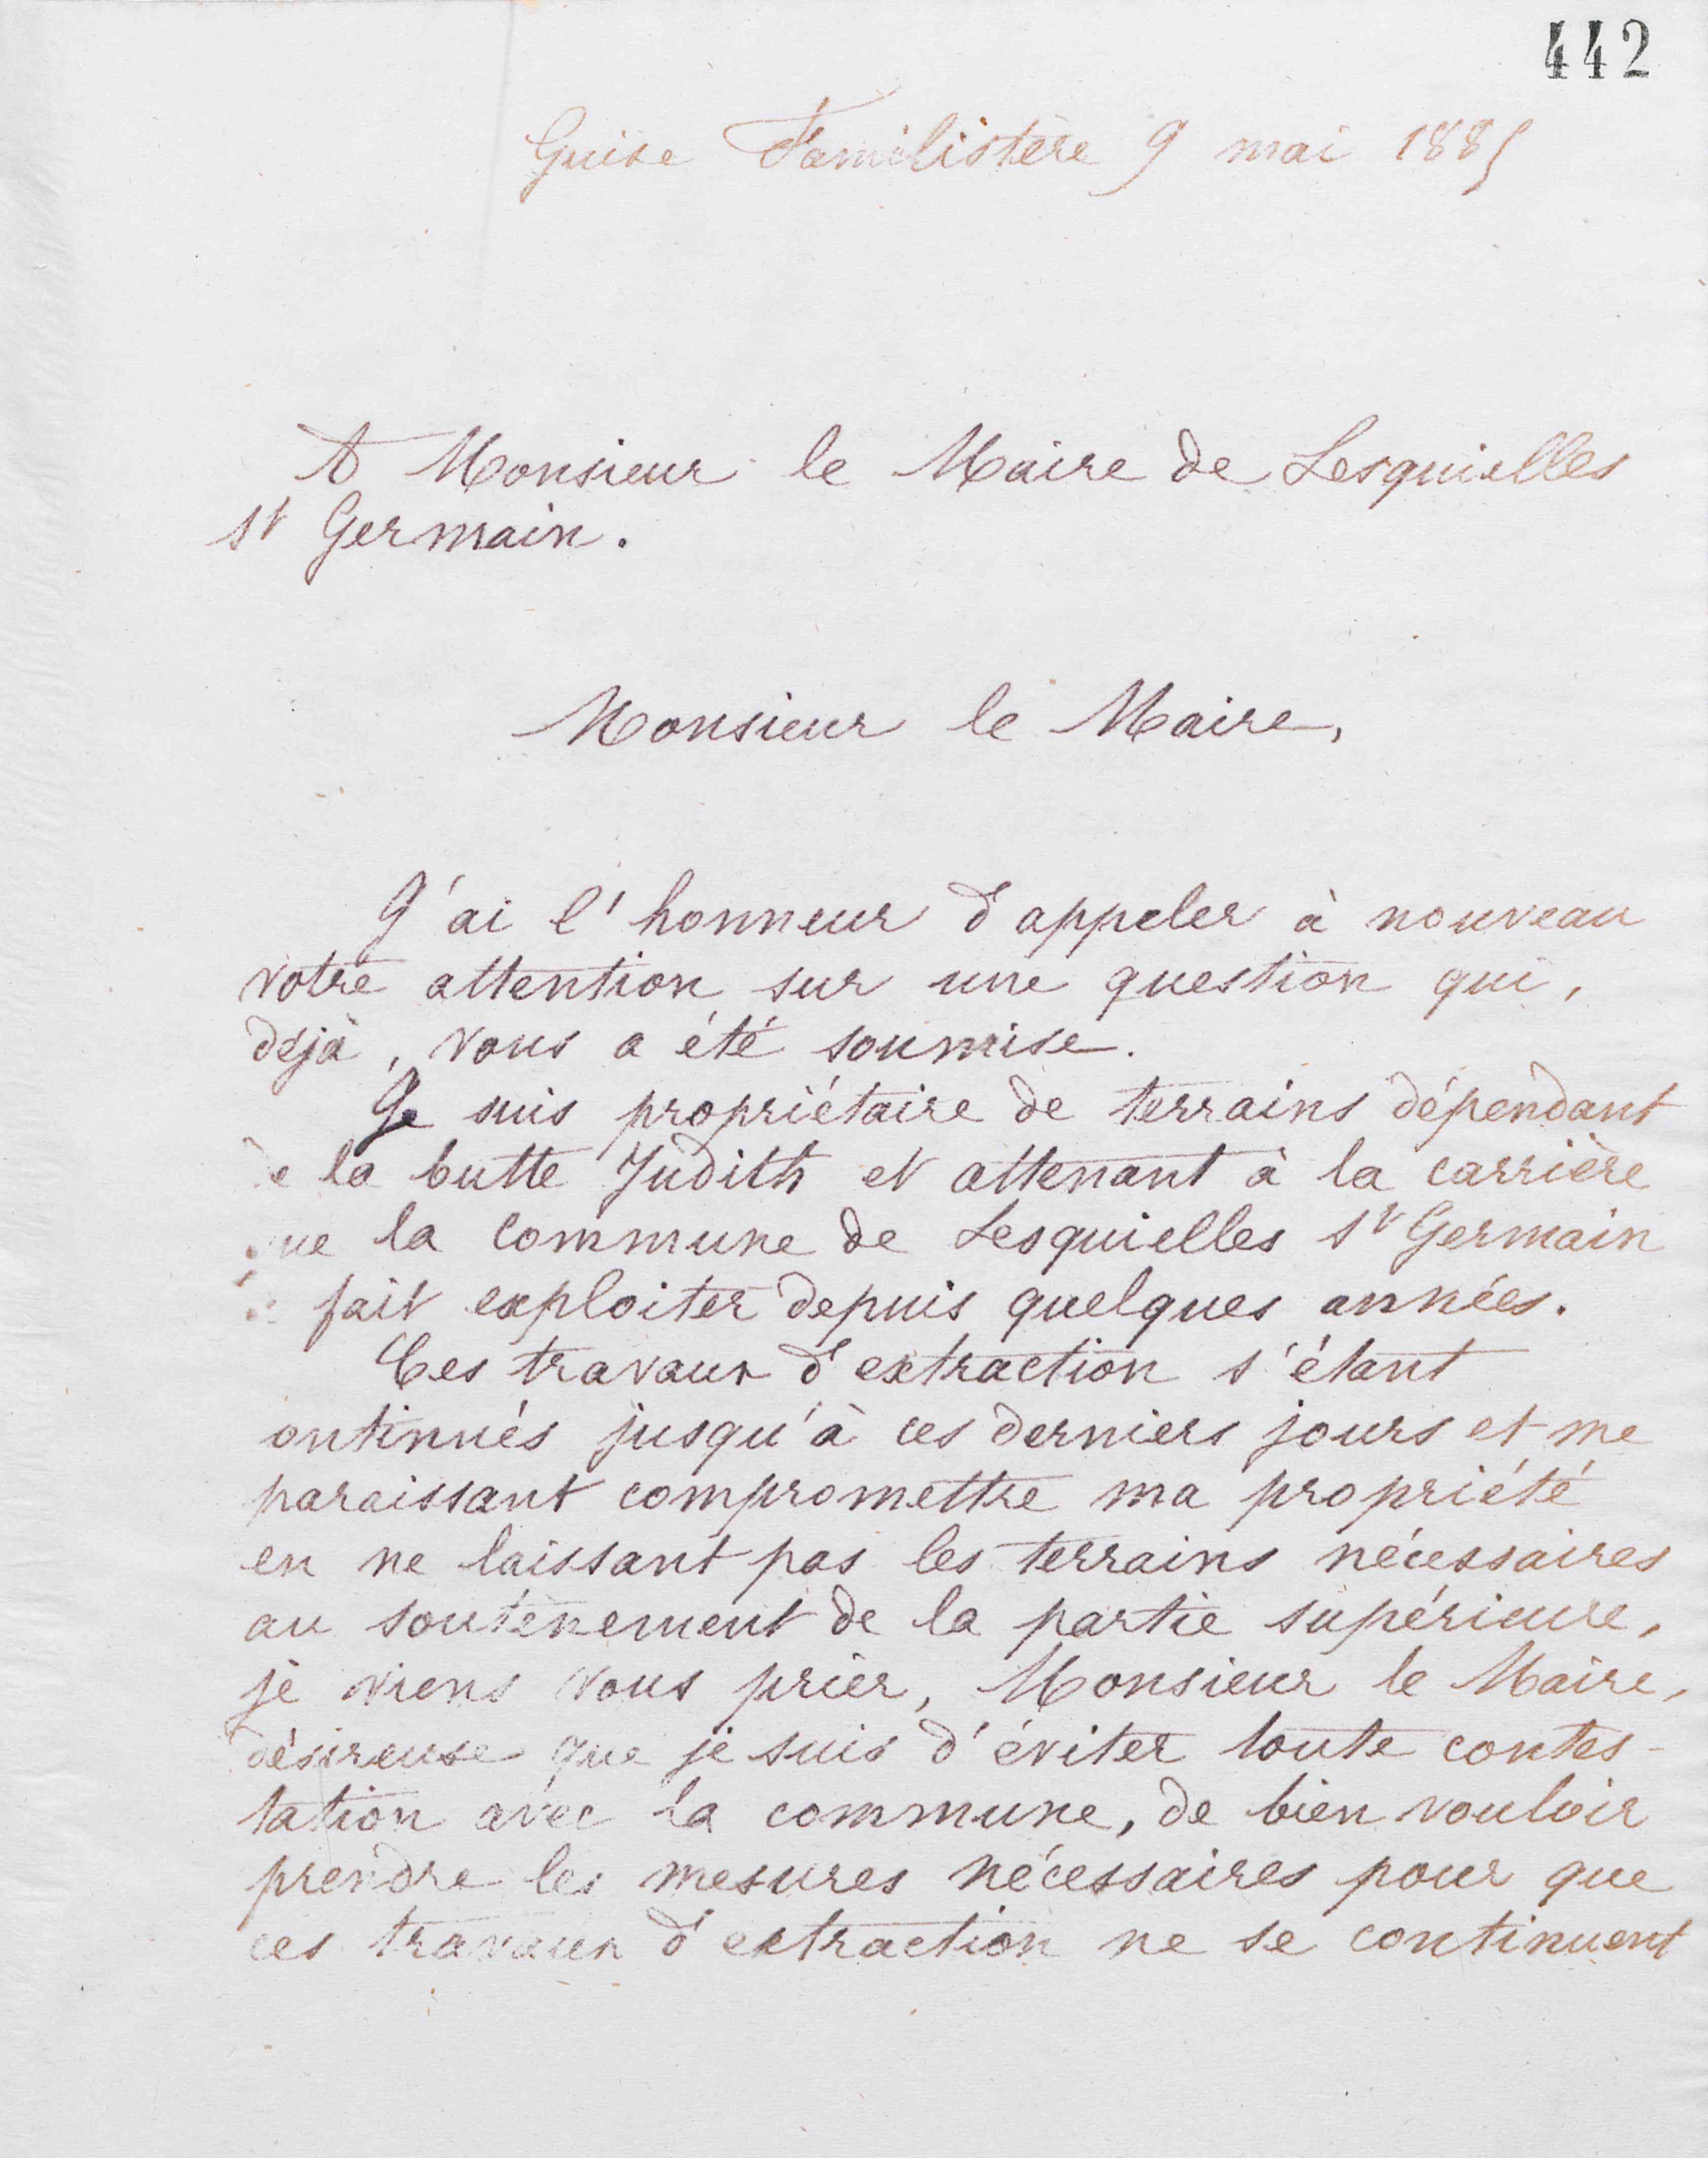 442
Guise Familistère 9 mai 1885
A Monsieur le Maire de Lesquielles
St Germain.
Monsieur le Maire,
J'ai l'honneur d'appeler à nouveau
votre attention sur une question qui,
déjà, vous a été soumise.
Je suis propriétaire de terrains dépendant
de la butte Judith et attenant à la carrière
que la commune de Lesquielles St Germain
fait exploiter depuis quelques années.
Ces travaux d'extraction s'étant
ontinués jusqu'à ces derniers jours et me
paraissant compromettre ma propriété
en ne laissant pas les terrains nécessaires
au soutènement de la partie supérieure,
je viens vous prier, Monsieur le Maire,
désireuse que je suis d'éviter toute contes-
tation avec la commune, de bien vouloir
prendre les mesures nécessaires pour que
ces travaux d'extraction ne se continuent